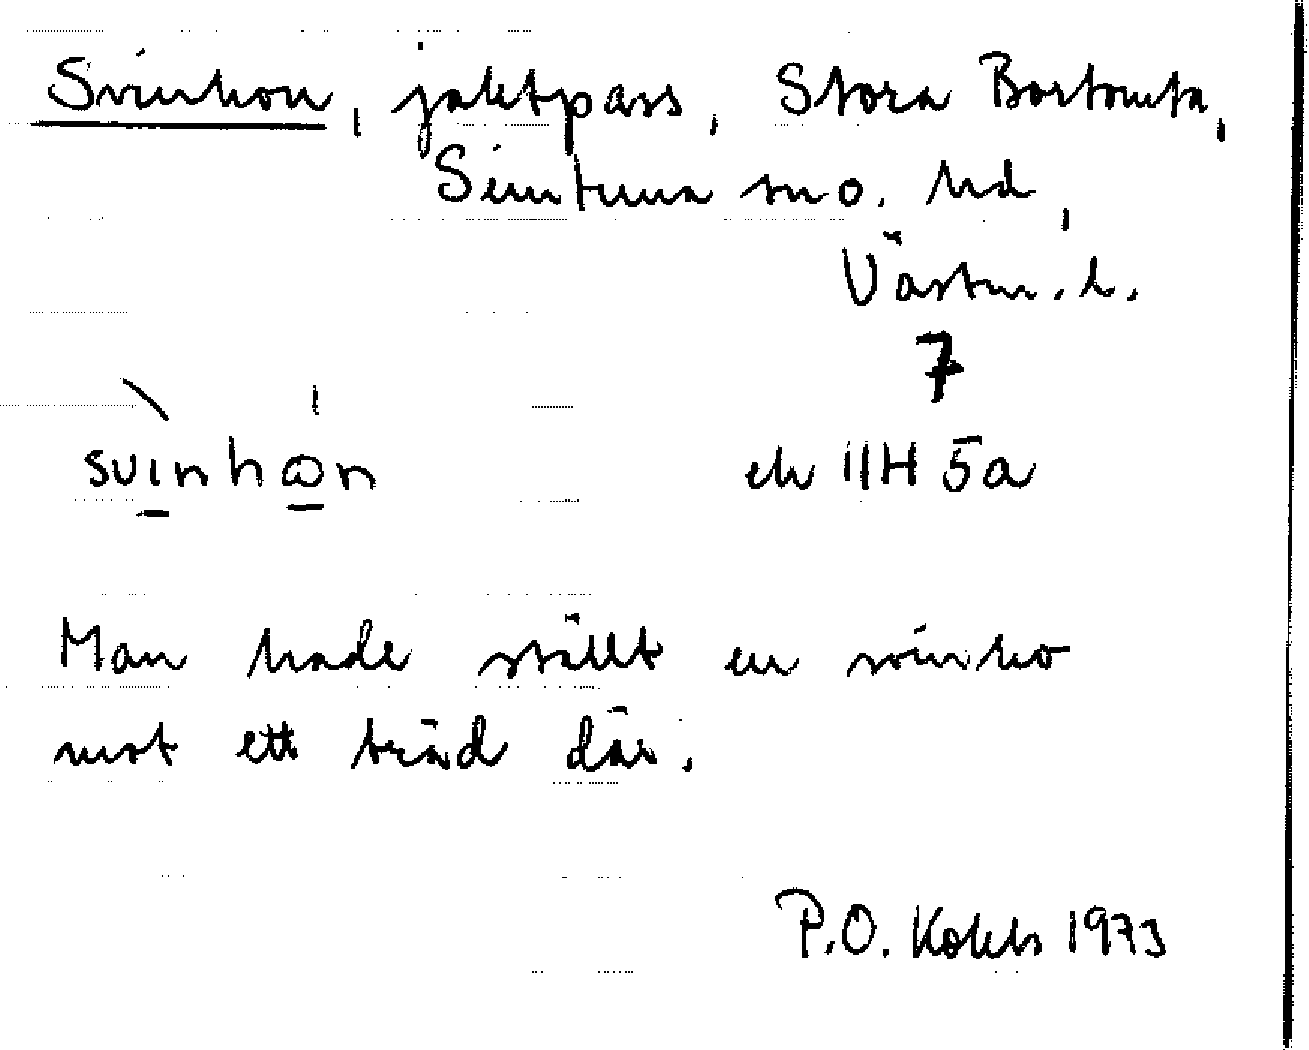 Svinhon, jaktpass, Stora Bortomta,
Simtuna sn o. hd,
Västm. l.
7
svinhɷn ek 11H 5a
Man hade ställt en svinho
mot ett träd där.
P.O. 1973